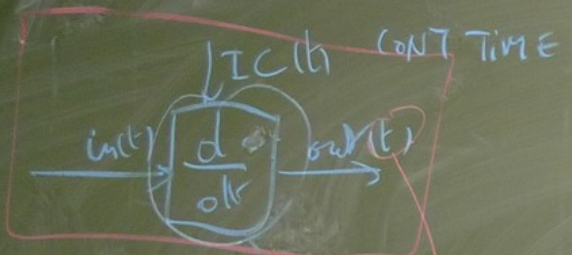 CONT TIME
in(t)
d
dt
out(t)